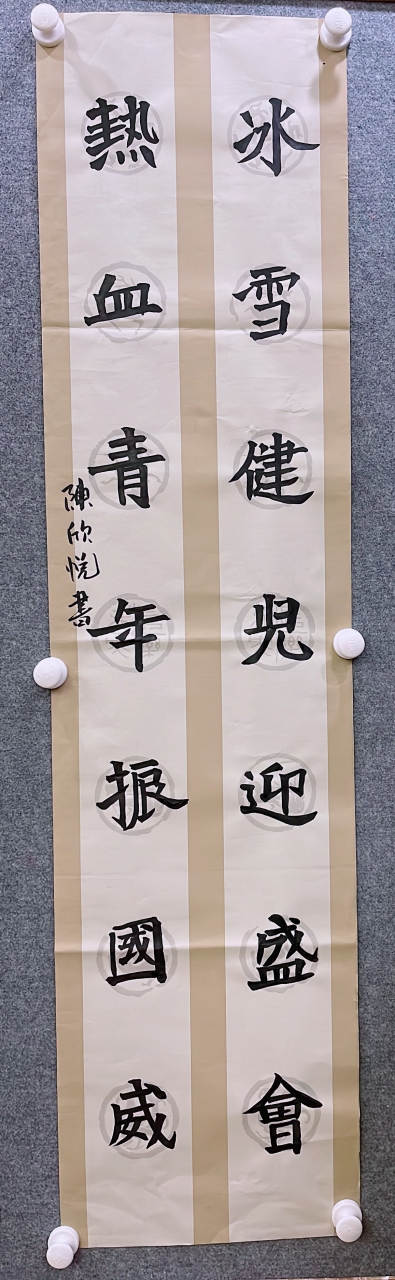 冰雪健児迎盛會
熱血青年振國威
陳欣悅書